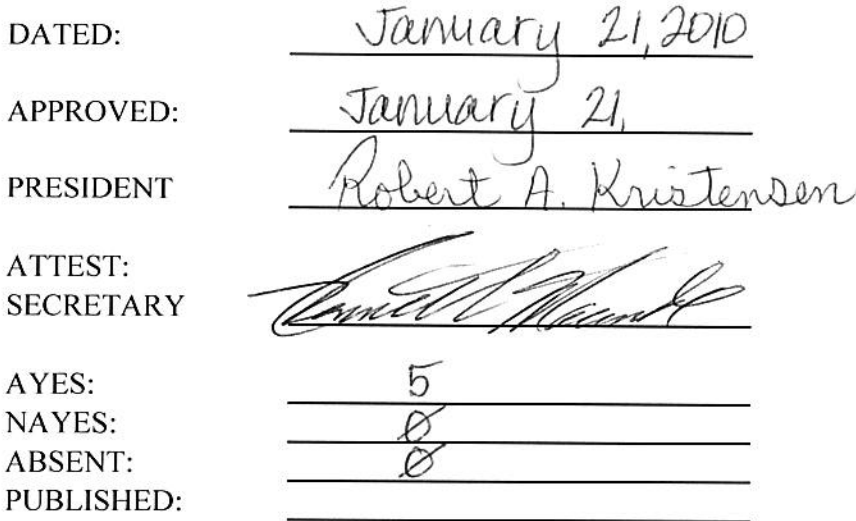 DATED: January 21, 2010
APPROVED: January 21,
PRESIDENT Robert A. Kristensen
ATTEST:
SECRETARY
AYES: 5
NAYES: 0
ABSENT: 0
PUBLISHED: